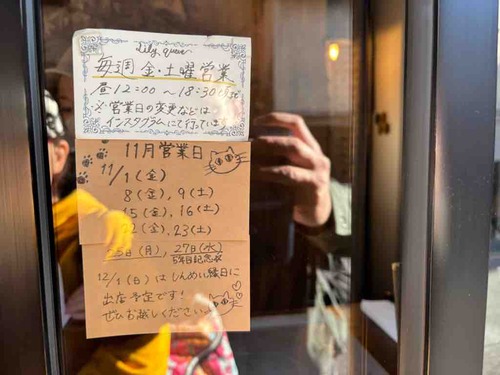 Lily queen
毎週 金・土曜営業
昼12:00〜18:30
※営業日の変更などは
インスタグラムにて行っています
11月営業日
11/1(金)
8(金),9(土)
15(金),16(土)
22(金),23(土)
25日(月),27日(水)
5年目記念☆
12/1(日)はしんめい縁日に
出店予定です!
ぜひお越しください